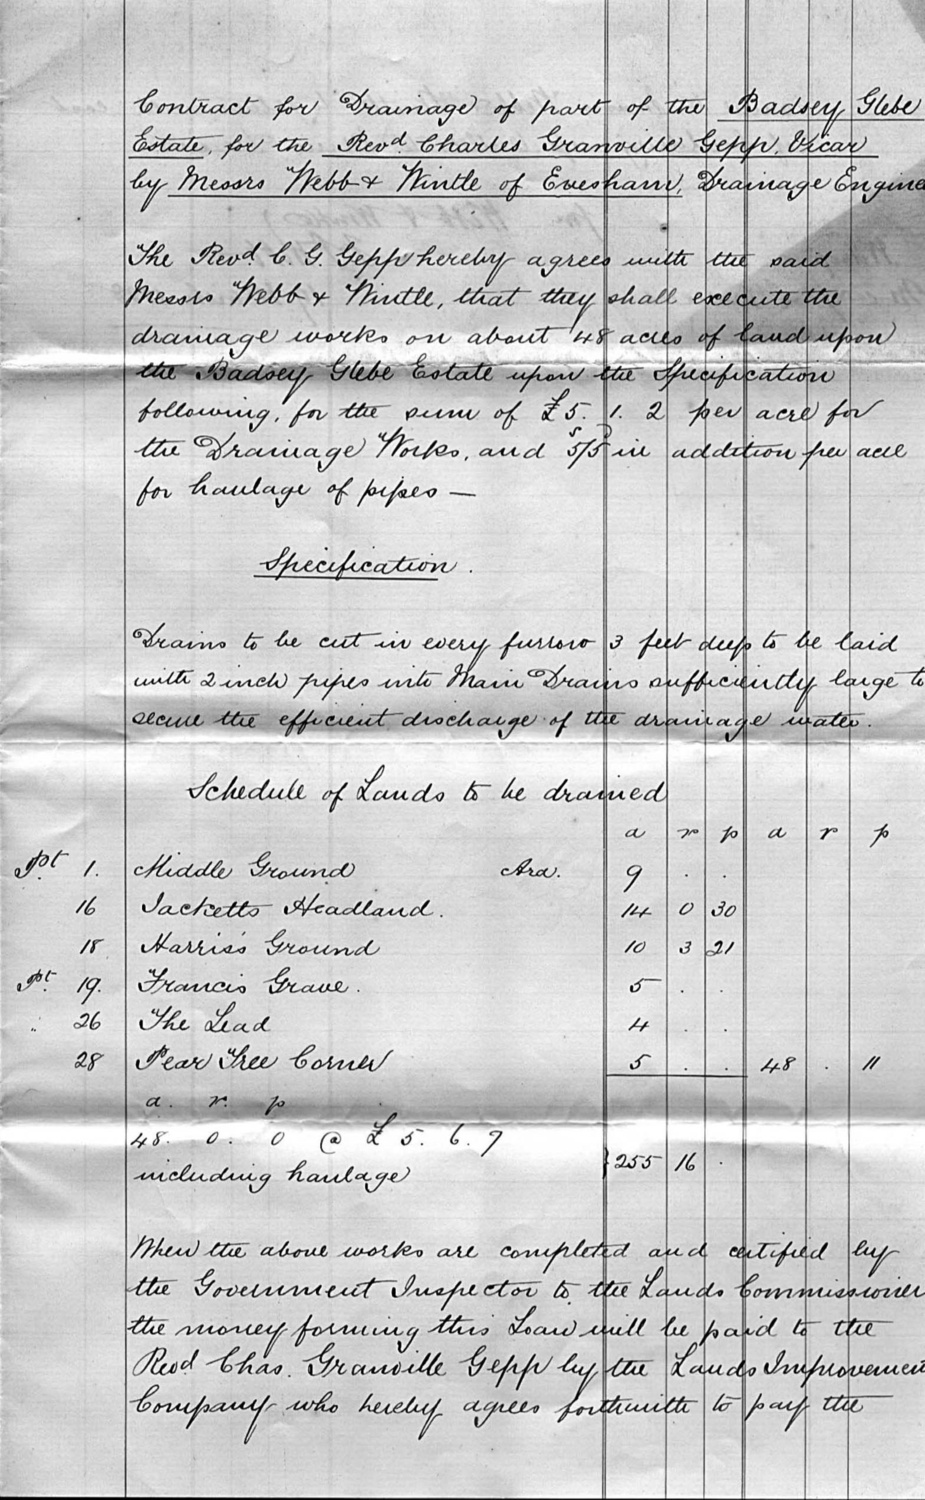 Contract for Drainage of part of the Badsey Glebe
Estate, for the Revd. Charles Granville Gepp, Vicar
by Messrs Webb & Wintle of Evesham, Drainage Engine
The Revd. C. G. Gepp hereby agrees with the said
Messrs Webb & Wintle, that they shall execute the
drainage works on about 48 acres of land upon
the Badsey Glebe Estate upon the Specification
following, for the sum of £5. 1. 2 per acre for
the Drainage Works, and 5/5 in addition per acre
for haulage of pipes —
Specification.
Drains to be cut in every furrow 3 feet deep to be laid
with 2 inch pipes into Main Drains sufficiently large to
secure the efficient discharge of the drainage water.
Schedule of Lands to be drained
a r p a r p
Pt. 1. Middle Ground Ara. 9 . .
16 Jacketts Headland. 14 0 30
18 Harris's Ground 10 3 21
Pt. 19. Francis Grave. 5 . .
" 26 The Lead 4 . .
28 Pear Tree Corner 5 . . 48 . 11
a. r. p
48. 0. 0 @ £5. 6. 7
including haulage } 255 16 .
When the above works are completed and certified by
the Government Inspector to the Lands Commissioner
the money forming this Loan will be paid to the
Revd Chas. Granville Gepp by the Lands Improvemen
Company who hereby agrees forthwith to pay the